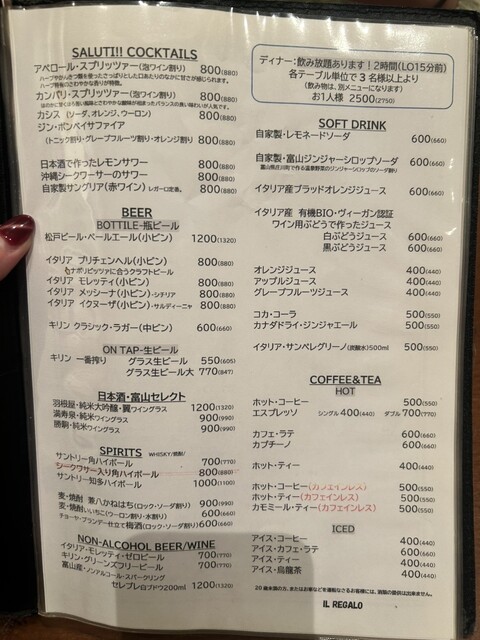 SALUTI!! COCKTAILS
アペロール・スプリッツァー(泡ワイン割り) 800(880)
カンパリ・スプリッツァー(泡ワイン割り) 800(880)
カシス (ソーダ、オレンジ、ウーロン) 800(880)
ジン・ボンベイサファイア
(トニック割り・グレープフルーツ割り・オレンジ割り 800(880)
日本酒で作ったレモンサワー 800(880)
沖縄シークワーサーのサワー 800(880)
自家製サングリア(赤ワイン) レガーロ定番。 800(880)
BEER
BOTTILE-瓶ビール
松戸ビール・ペールエール(小ビン) 1200(1320)
イタリア プリチェンヘル(小ビン) 800(880)
ナポリピッツァに合うクラフトビール
イタリア モレッティ(小ビン) 800(880)
イタリア メッシーナ(小ビン)-シチリア 800(880)
イタリア イクヌーザ(小ビン)-サルディーニャ 800(880)
キリン クラシック・ラガー(中ビン) 600(660)
ON TAP-生ビール
キリン 一番搾り グラス生ビール 550(605)
グラス生ビール大 770(847)
日本酒・富山セレクト
羽根屋・純米大吟醸・翼ワイングラス 1200(1320)
満寿泉・純米ワイングラス 900(990)
勝駒・純米ワイングラス 900(990)
SPIRITS WHISKY/焼酎/
サントリー角ハイボール 700(770)
シークワサー入り角ハイボール 800(880)
サントリー知多ハイボール 1000(1100)
麦・焼酎 兼八かねはち(ロック・ソーダ割り) 900(990)
麦・焼酎いいちこ(ウーロン割り・水割り) 600(660)
チョーヤ・ブランデー仕立て梅酒(ロック・ソーダ割り) 600(660)
NON-ALCOHOL BEER/WINE
イタリア・モレッティ-ゼロビール 700(770)
キリン・グリーンズフリービール 700(770)
富山産・ノンアルコール・スパークリング
セレブレ白ブドウ200ml 1200(1320)
ディナー:飲み放題あります!2時間(LO15分前)
各テーブル単位で3名様以上より
(飲み物は、別メニューになります)
お1人様 2500(2750)
SOFT DRINK
自家製・レモネードソーダ 600(660)
自家製・富山ジンジャーシロップソーダ 600(660)
イタリア産ブラッドオレンジジュース 600(660)
イタリア産 有機BIO・ヴィーガン認証
ワイン用ぶどうで作ったジュース
白ぶどうジュース 600(660)
黒ぶどうジュース 600(660)
オレンジジュース 400(440)
アップルジュース 400(440)
グレープフルーツジュース 400(440)
コカ・コーラ 500(550)
カナダドライ・ジンジャエール 500(550)
イタリア・サンペレグリーノ(炭酸水)500ml 500(550)
COFFEE&TEA
HOT
ホット・コーヒー 500(550)
エスプレッソ シングル 400(440) ダブル 700(770)
カフェ・ラテ 600(660)
カプチーノ 600(660)
ホット・ティー 400(440)
ホット・コーヒー(カフェインレス) 500(550)
ホット・ティー(カフェインレス) 500(550)
カモミール・ティー(カフェインレス) 500(550)
ICED
アイス・コーヒー 400(440)
アイス・カフェ・ラテ 600(660)
アイス・ティー 400(440)
アイス・烏龍茶 400(440)
IL REGALO